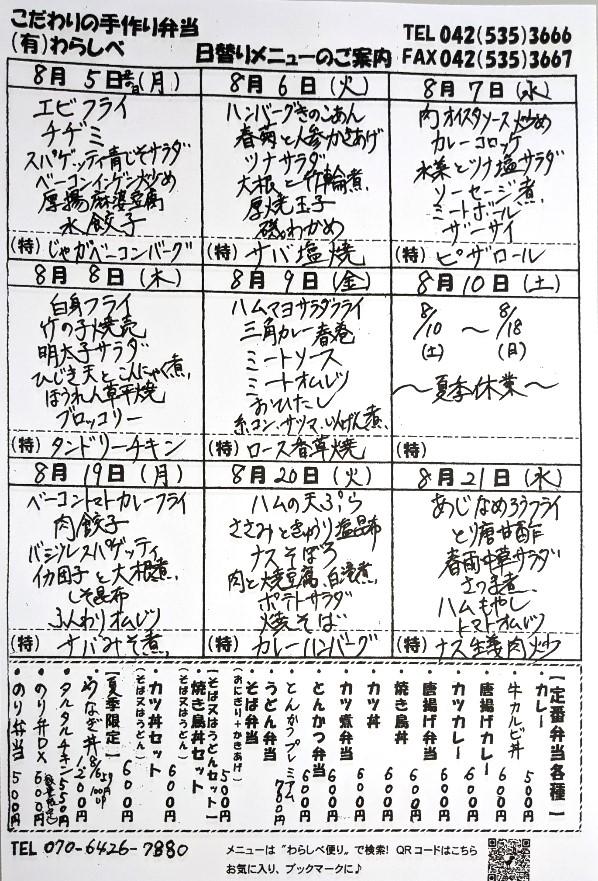 こだわりの手作り弁当
(有)わらしべ
日替りメニューのご案内
TEL 042(535)3666
FAX 042(535)3667
8月 5日(月)
エビフライ
チヂミ
スパゲッティ青じそサラダ
ベーコンインゲン炒め
厚揚麻婆豆腐
水餃子
(特) じゃがベーコンバーグ
8月 6日(火)
ハンバーグきのこあん
春菊と人参かきあげ
ツナサラダ
大根と竹輪煮
厚焼玉子
磯わかめ
(特) サバ塩焼
8月 7日(水)
肉オイスタソース炒め
カレーコロッケ
水菜とツナ塩サラダ
ソーセージ煮
ミートボール
ザーサイ
(特) ピザロール
8月 8日(木)
白身フライ
竹の子焼売
明太子サラダ
ひじき天とこんにゃく煮
ほうれん草平焼
ブロッコリー
(特) タンドリーチキン
8月 9日(金)
ハムマヨサラダフライ
三角カレー春巻
ミートソース
ミートオムレツ
おひたし
糸コン、サツマ、いんげん煮
(特) ロース香草焼
8月10日(土)
8/10(土)〜8/18(日)
〜夏季休業〜
(特)
8月19日(月)
ベーコントマトカレーフライ
肉餃子
バジルスパゲッティ
イカ団子と大根煮
しそ昆布
ふんわりオムレツ
(特) サバみそ煮
8月20日(火)
ハムの天ぷら
ささみときゅうり塩昆布
ナスそぼろ
肉と焼豆腐、白滝煮
ポテトサラダ
焼そば
(特) カレーハンバーグ
8月21日(水)
あじなめろうフライ
とり唐甘酢
春雨中華サラダ
さつま煮
ハムもやし
トマトオムレツ
(特) ナス生姜肉炒
【定番弁当各種】
・カレー 500円
・牛カルビ丼
・唐揚げカレー 600円
・カツカレー 600円
・唐揚げ弁当 600円
・焼き鳥丼 600円
・カツ丼 600円
・カツ煮弁当 600円
・とんかつ弁当 600円
・とんかつプレミアム 700円
・うどん弁当
・そば弁当
(おにぎり+かきあげ) 500円
【そば又はうどんセット】
・焼き鳥丼セット
(そば又はうどん) 600円
・カツ丼セット
(そば又はうどん) 600円
【夏季限定】
・うなぎ丼 1200円
・タルタルチキン 550円
・のり弁DX 600円
・のり弁当 500円
TEL 070-6426-7880
メニューは "わらしべ便り" で検索! QRコードはこちら
お気に入り、ブックマークに♪